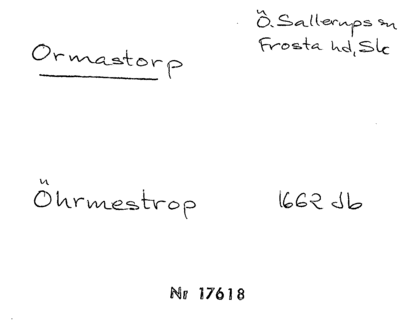 Ö. Sallerups sn
Frosta hd, Sk
Ormastorp
Öhrmestrop 1662 db
Nr 17618